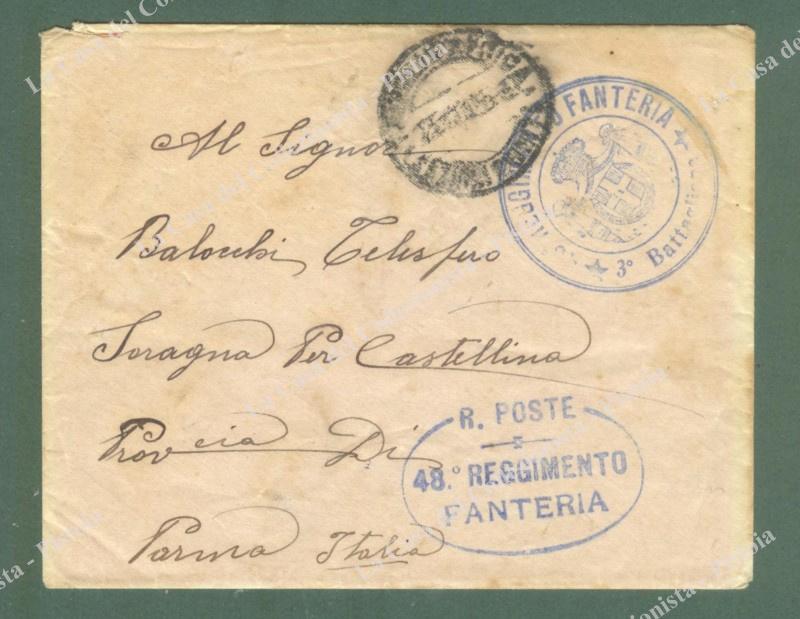 Al Signor
Balocchi Telesforo
Soragna Per Castellina
Prov cia Di
Parma Italia
FANTERIA
3° Battaglione
R. POSTE
48.° REGGIMENTO
FANTERIA
La Casa del Collezionista - Pistoia